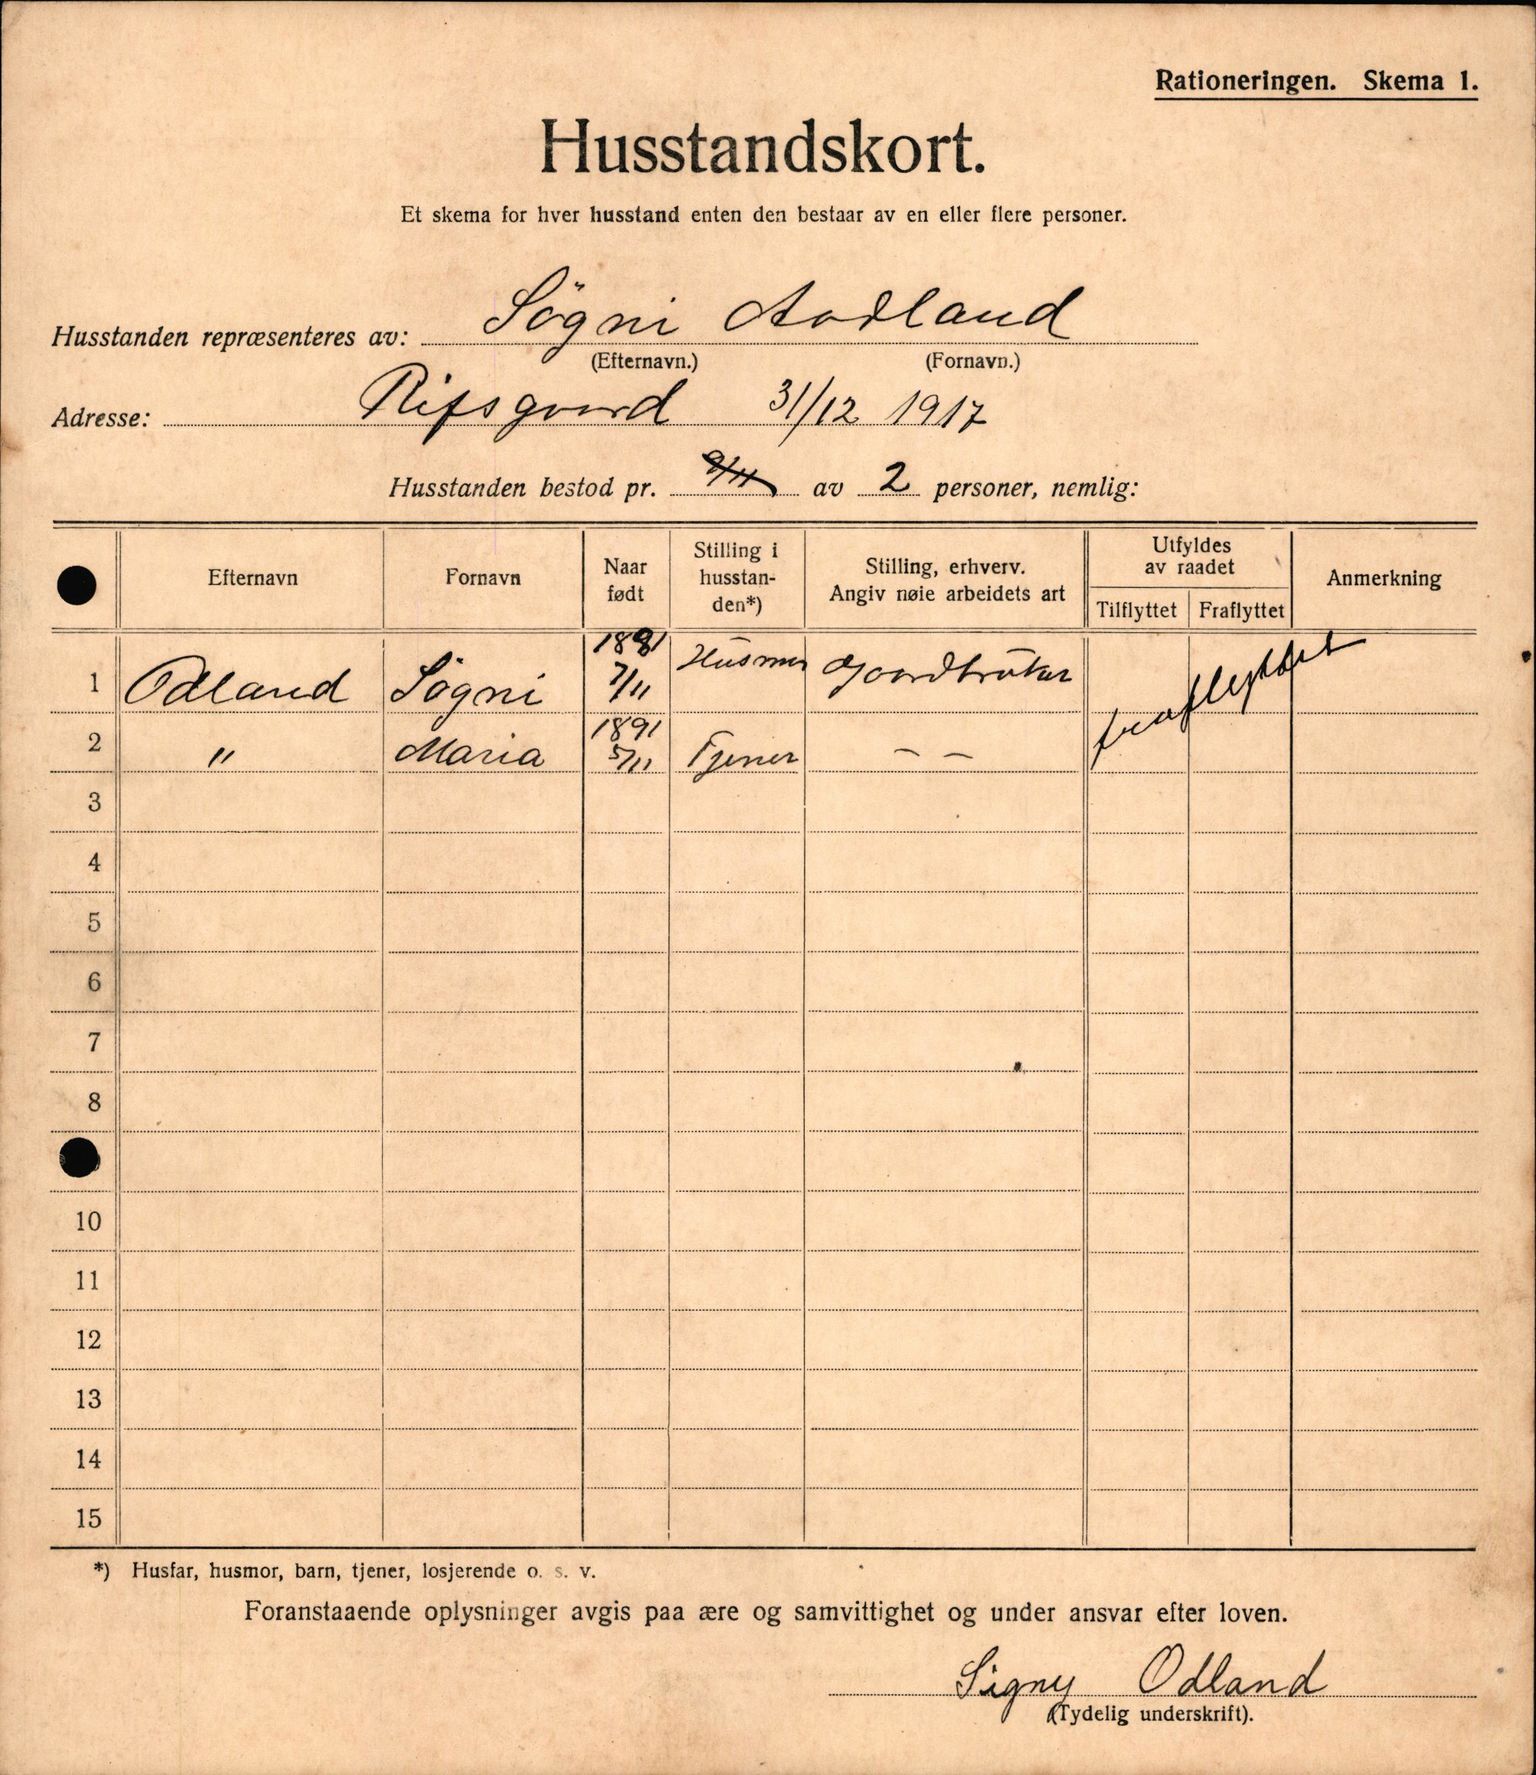 Rationeringen. Skema 1.
Husstandskort.
Et skema for hver husstand enten den bestaar av en eller flere personer.
Husstanden repræsenteres av: Søgni Aadland
(Efternavn.) (Fornavn.)
Adresse: Rifsgaard 31/12 1917
Husstanden bestod pr. 9/11 av 2 personer, nemlig:
Efternavn Fornavn Naar født Stilling i husstanden*) Stilling, erhverv. Angiv nøie arbeidets art Utfyldes av raadet Tilflyttet Fraflyttet Anmerkning
1 Odland Søgni 1881 7/11 Husmor Gaardbruker fraflyttet
2 " Maria 1891 5/11 Tjener — —
3
4
5
6
7
8
10
11
12
13
14
15
*) Husfar, husmor, barn, tjener, losjerende o. s. v.
Foranstaaende oplysninger avgis paa ære og samvittighet og under ansvar efter loven.
Signy Odland
(Tydelig underskrift).